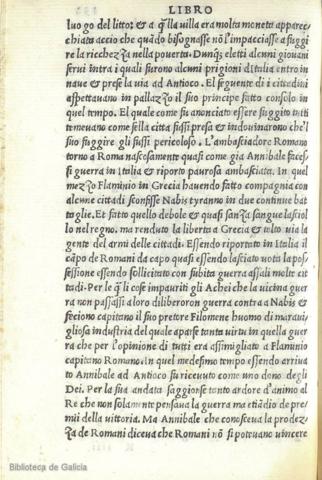 LIBRO
luo go del litto⁊ & a q̃lla uilla era molta moneta apparec⸗
chiata accio che quādo bisognasse nō l'impacciasse a fuggi
re la ricchez̧a nella pouerta. Dunq̃ eletti alcuni giouani
serui intra i quali furono alcuni prigioni d'Italia entro in
naue & prese la uia ad Antioco. El seguente di i cittadini
aspettauano in pallaz̧o il suo principe fatto consolo in
quel tempo. El quale come fu anonciato essere fuggito tutti
temeuano come se la citta fussi presa & indouinarono che'l
suo fuggire gli fussi pericoloso. L'ambasciadore Romano
torno a Roma nascosamente quasi come gia Annibale faces⸗
si guerra in Italia & riporto paurosa ambasciata. In quel
mez̧o Flaminio in Grecia hauendo fatto compagnia con
alcune cittadi sconfisse Nabis tyranno in due continue bat
taglie. Et fatto quello debole & quasi sanz̧a sangue lasciol
lo nel regno. ma renduto la liberta a Grecia & tolto uia la
gente del armi delle cittadi. Essendo riportato in Italia il
cāpo de Romani da capo quasi essendo lasciato uota la pos⸗
sessione essendo sollicitato con subita guerra assali molte cit
tadi. Per le q̃li cose impauriti gli Achei che la uicina guer
ra non passassi a loro diliberoron guerra contra a Nabis &
feciono capitano il suo pretore Filomene huomo di maraui⸗
gliosa industria del quale aparse tanta uirtu in quella guer
ra che per l'opinione di tutti era assimigliato a Flaminio
capitano Romano. In quel medesimo tempo essendo arriua
to Annibale ad Antioco fu riceuuto come uno dono degli
Dei. Per la sua andata s'aggionse tanto ardore d'animo al
Re che non solamente pensaua la guerra ma etiādio de pre⸗
mii della uittoria. Ma Annibale che conosceua la prodez⸗
z̧a de Romani diceua che Romani nō si potuano uincere
Biblioteca de Galicia